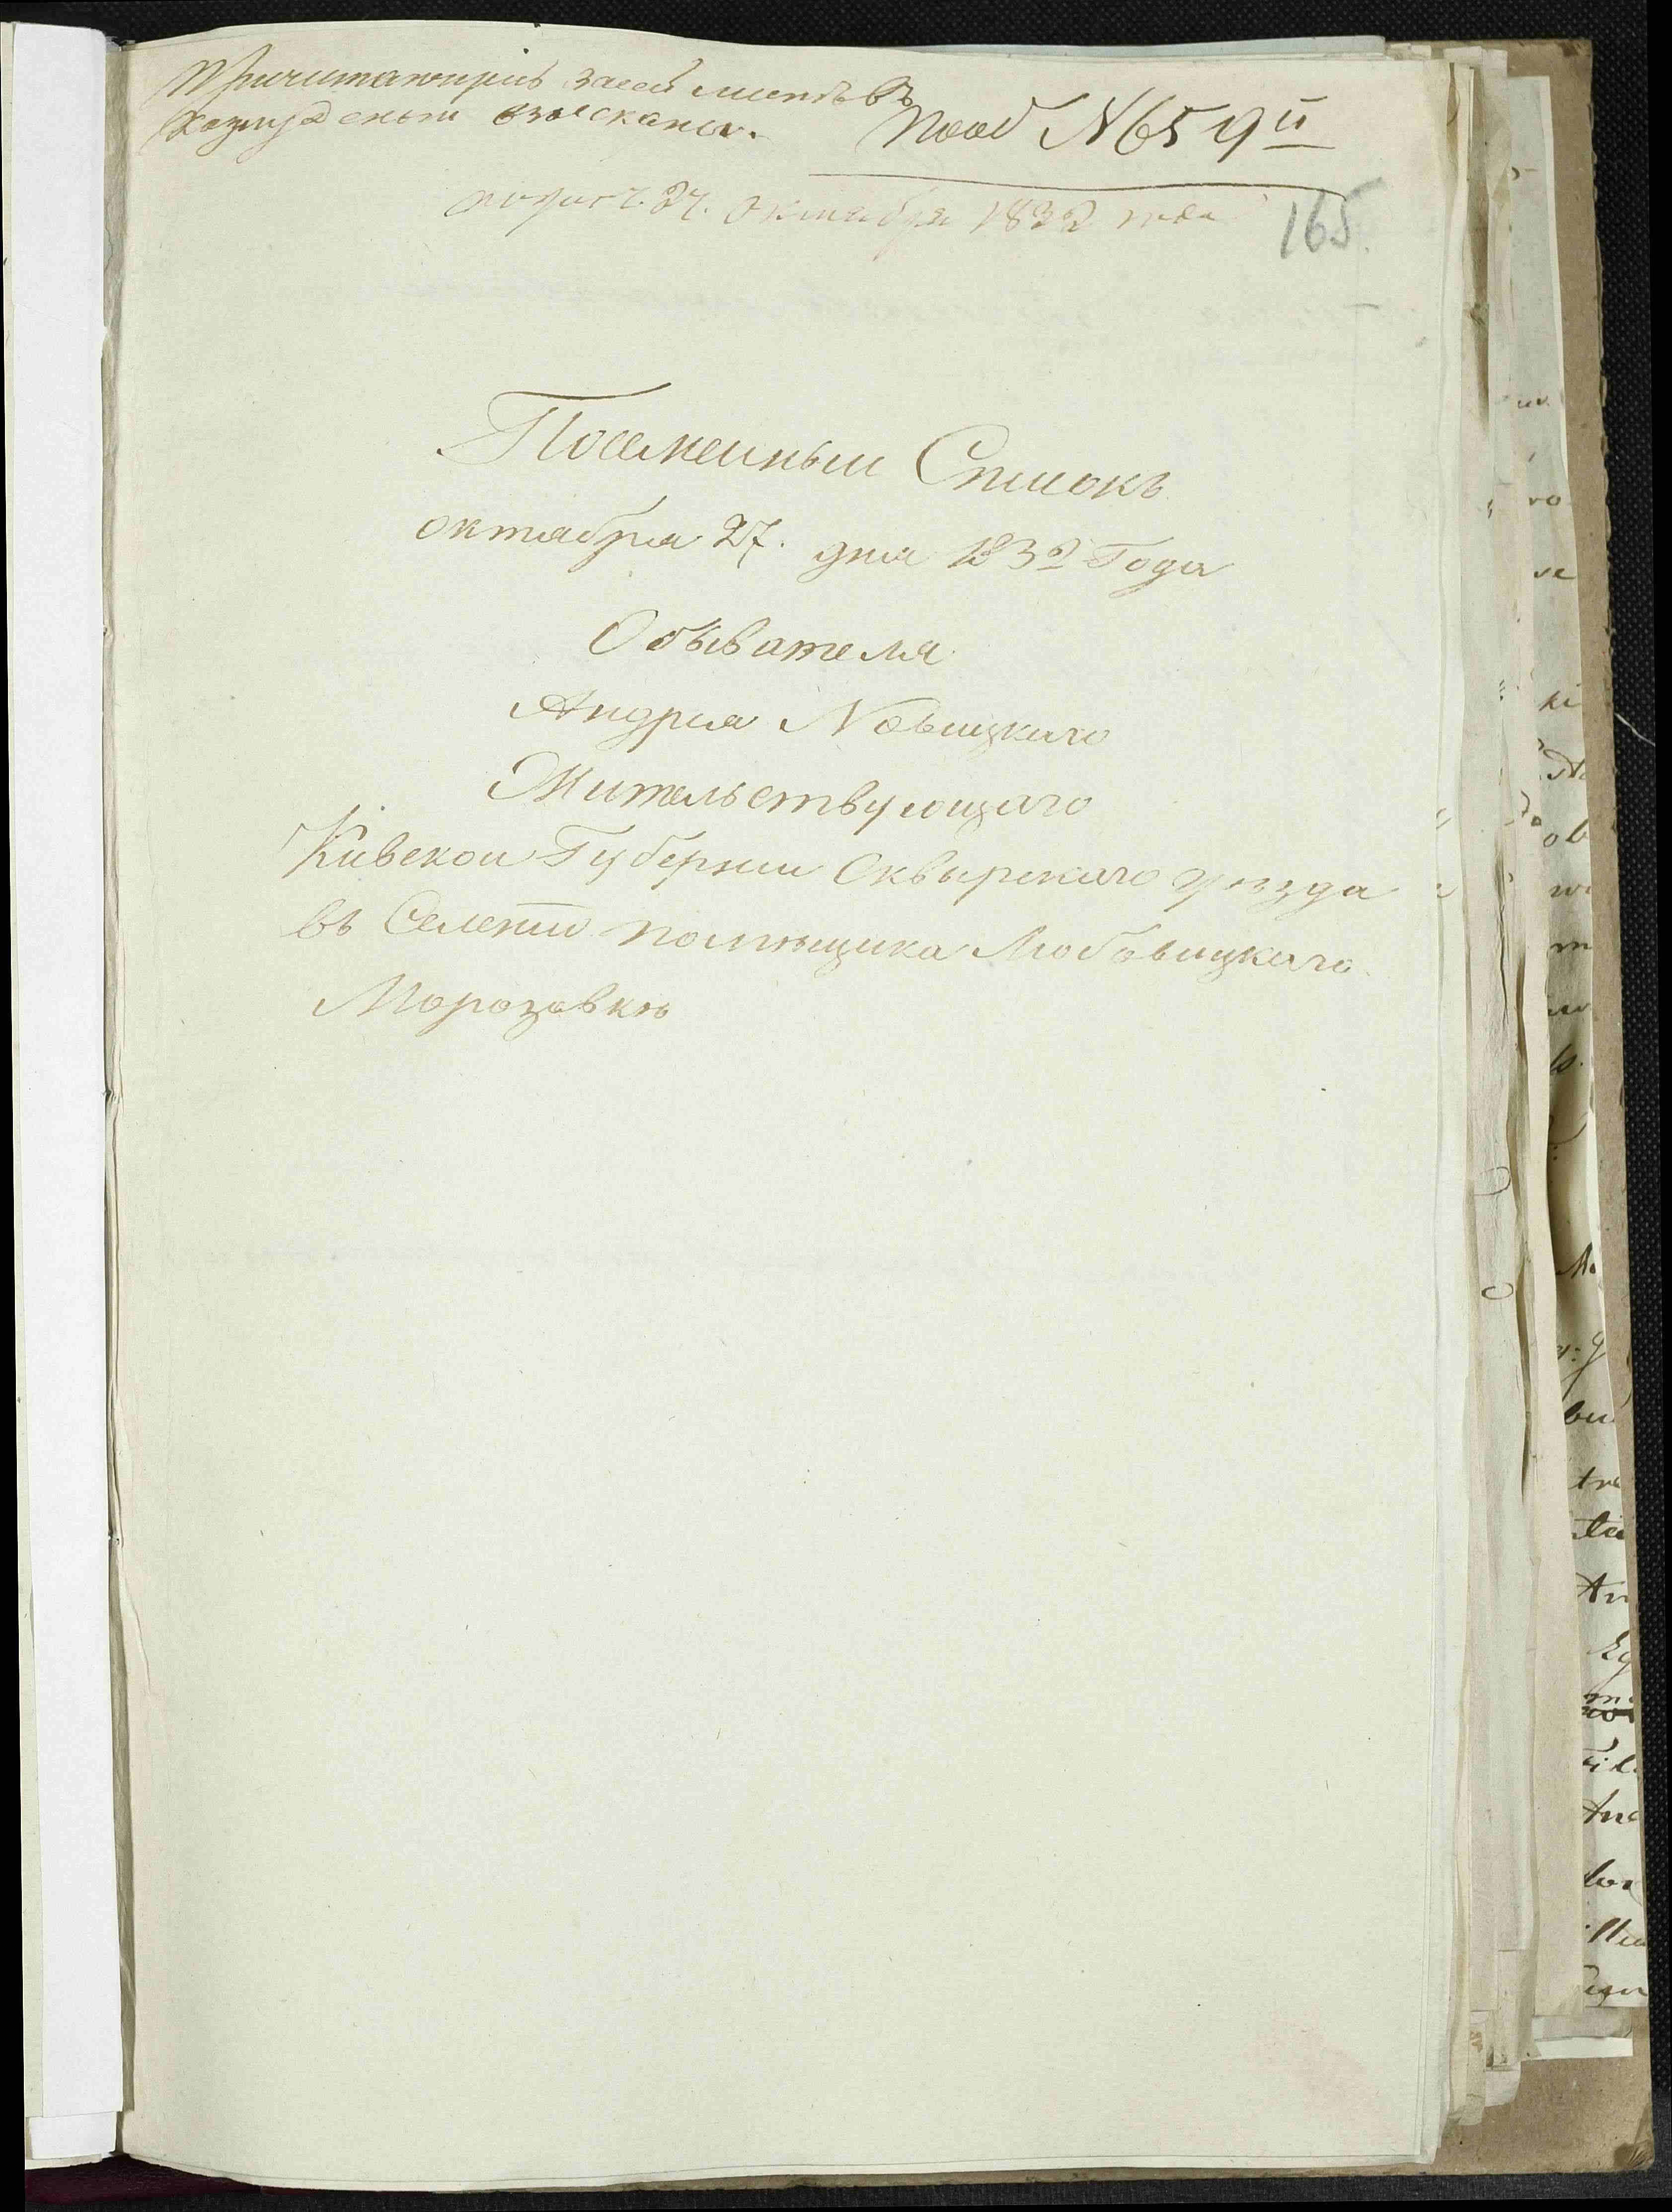 Причитающиесь за сей листъ въ
Казну деньги взысканы.
Под N 659й
получ. 27. октября 1832 года
165.
Посемейный Списокъ
октабря 27. дня 1832 Года
Обывателя
Андрея Новицкаго
Жительствующаго
Кивской Губернии Сквырскаго уѣзда
въ Селении помѣщика Любовицкаго
Морозовкѣ